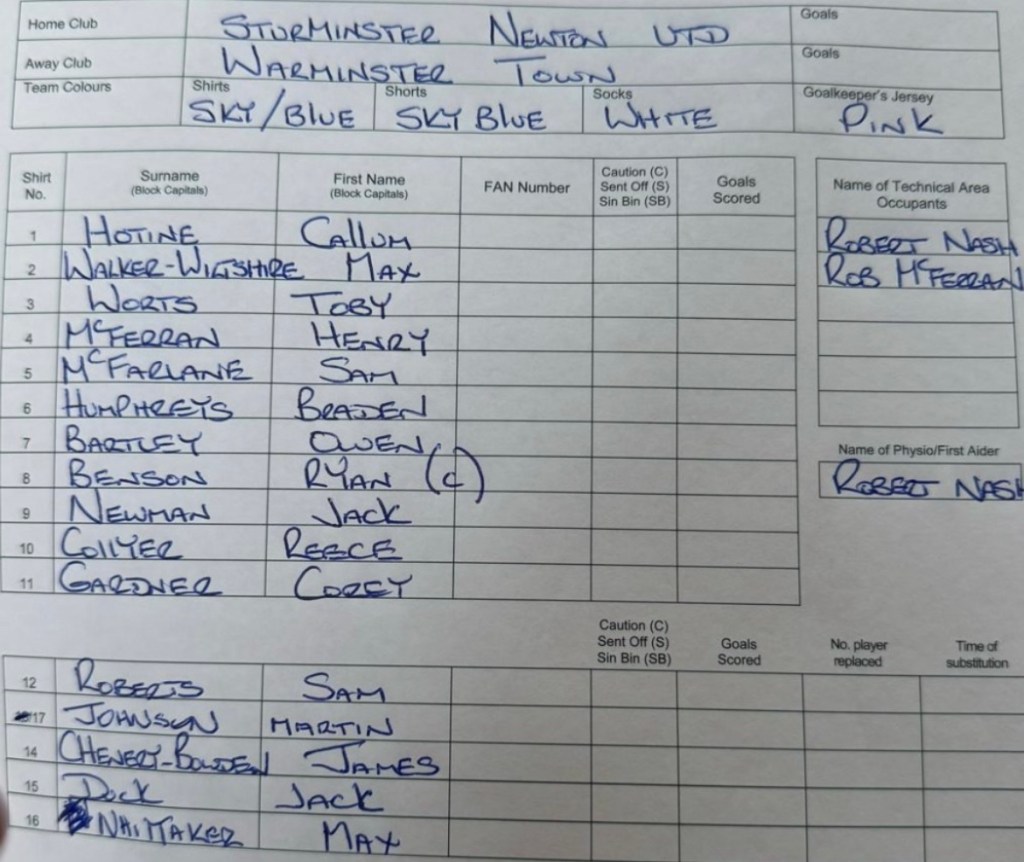 Home Club STURMINSTER NEWTON UTD Goals
Away Club WARMINSTER TOWN Goals
Team Colours Shirts SKY/BLUE Shorts SKY BLUE Socks WHITE Goalkeeper's Jersey PINK
Shirt No. Surname (Block Capitals) First Name (Block Capitals) FAN Number Caution (C) Sent Off (S) Sin Bin (SB) Goals Scored
1 HOTINE CALLUM
2 WALKER-WILTSHIRE MAX
3 WORTS TOBY
4 McFERRAN HENRY
5 McFARLANE SAM
6 HUMPHREYS BRADEN
7 BARTLEY OWEN
8 BENSON RYAN (C)
9 NEWMAN JACK
10 COLLYER REECE
11 GARDNER COREY
Name of Technical Area Occupants
ROBERT NASH
ROB McFERRAN
Name of Physio/First Aider
ROBERT NASH
Caution (C) Sent Off (S) Sin Bin (SB) Goals Scored No. player replaced Time of substitution
12 ROBERTS SAM
17 JOHNSON MARTIN
14 JAMES
15 DUCK JACK
16 MAX